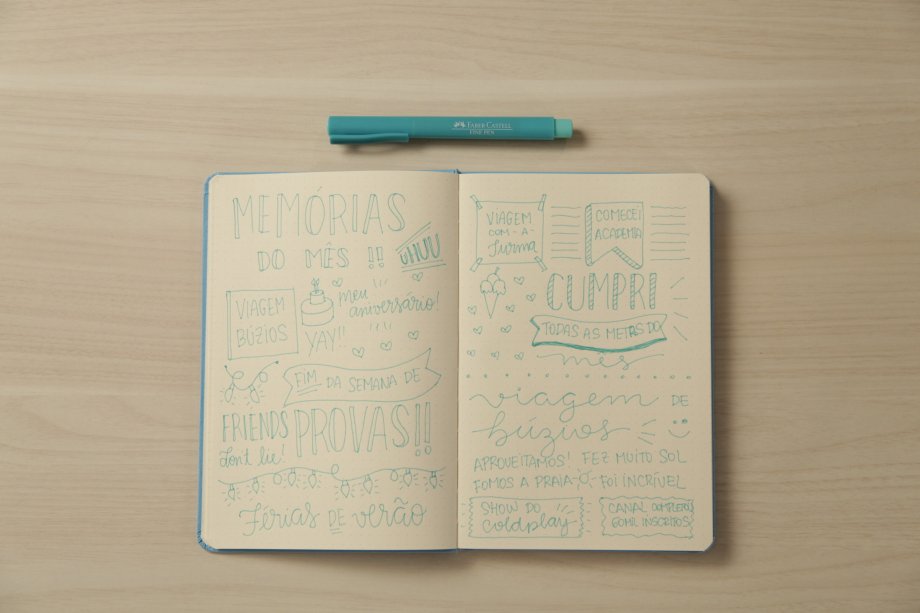 FABER-CASTELL
FINE PEN
MEMÓRIAS
DO MÊS !!
UHUU
VIAGEM
BÚZIOS
meu
aniversário!
YAY!!
FIM DA SEMANA DE
PROVAS!!
FRIENDS
Don't lie!
Férias DE verão
VIAGEM
COM-A-
Turma
COMECEI
ACADEMIA
CUMPRI
TODAS AS METAS DO
mês
viagem DE
búzios
APROVEITAMOS! FEZ MUITO SOL
FOMOS A PRAIA FOI INCRÍVEL
SHOW DO
coldplay
CANAL COMPLETOU
60MIL INSCRITOS